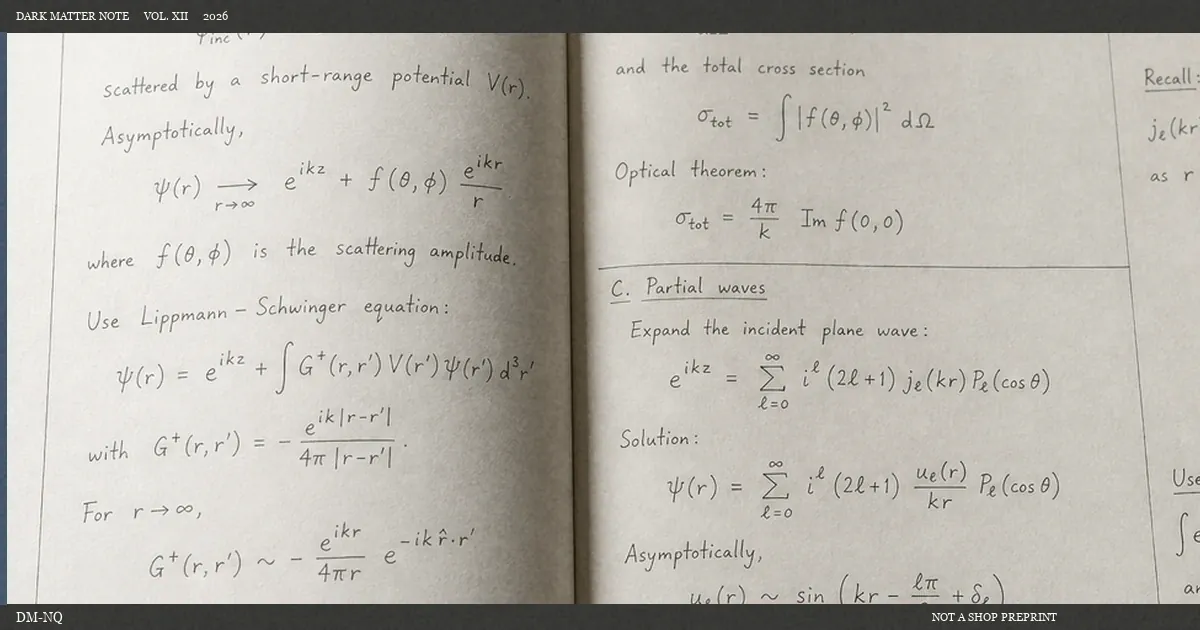 DARK MATTER NOTE VOL. XII 2026
scattered by a short-range potential V(r).
Asymptotically,
ψ(r) ⟶ e^{ikz} + f(θ, ϕ) e^{ikr}/r
r→∞
where f(θ, ϕ) is the scattering amplitude.
Use Lippmann – Schwinger equation:
ψ(r) = e^{ikz} + ∫ G⁺(r, r′) V(r′) ψ(r′) d³r′
with G⁺(r, r′) = − e^{ik|r−r′|} / 4π |r−r′| .
For r → ∞,
G⁺(r, r′) ~ − e^{ikr}/4πr e^{−ik r̂·r′}
and the total cross section
σ_tot = ∫ |f(θ, ϕ)|² dΩ
Optical theorem:
σ_tot = 4π/k Im f(0, 0)
C. Partial waves
Expand the incident plane wave:
e^{ikz} = ∑_{ℓ=0}^{∞} i^ℓ (2ℓ+1) j_ℓ(kr) P_ℓ(cos θ)
Solution:
ψ(r) = ∑_{ℓ=0}^{∞} i^ℓ (2ℓ+1) u_ℓ(r)/kr P_ℓ(cos θ)
Asymptotically,
u_ℓ(r) ~ sin (kr − ℓπ + δ_ℓ)
Recall:
j_ℓ(kr)
as r
Use
DM-NQ
NOT A SHOP PREPRINT